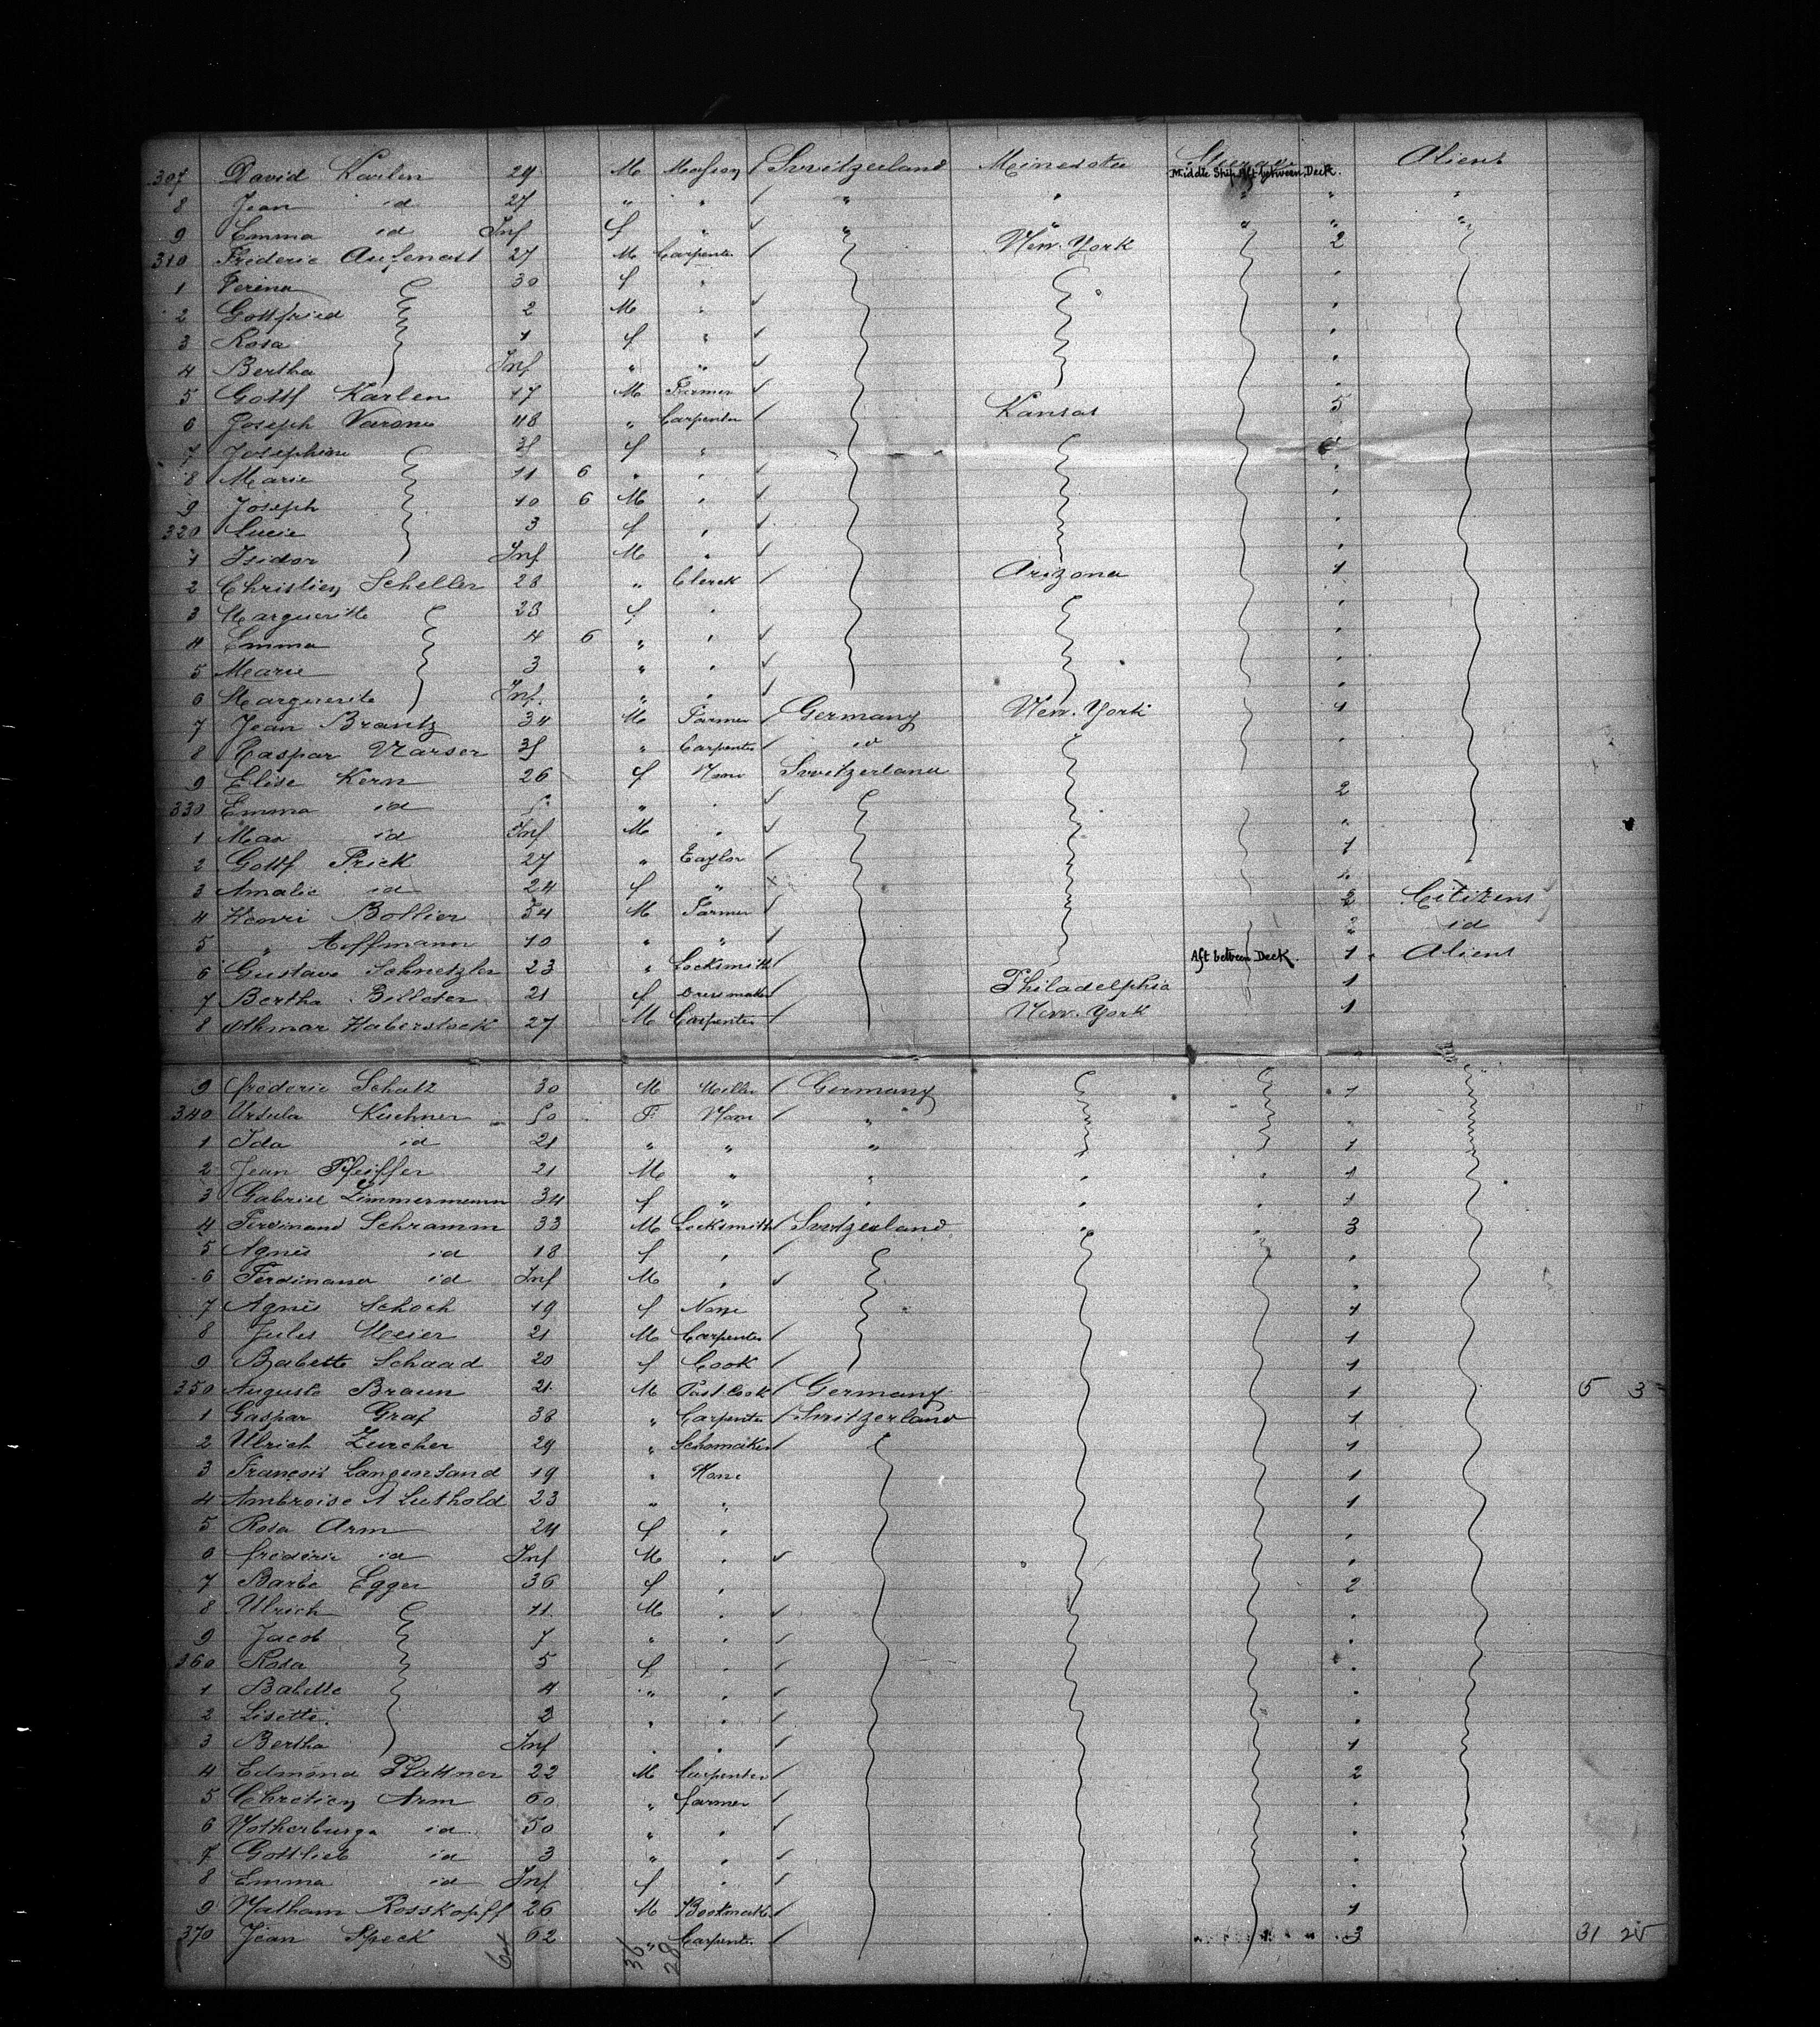 307 David Karlen 29 M Mason Switzerland Minesota Steerage Middle Ship Aft between Deck. Aliens
8 Jean id 27 " " " " " " "
9 Emma id Inf f " " " " " "
310 Frederic Aufenast 27 M Carpenter New-York 2
1 Verena 30 f "
2 Gottfried 2 M "
3 Rosa 1 f "
4 Bertha Inf " "
5 Gottf Karlen 17 M Farmer
6 Joseph Varone 48 " Carpenter Kansas 5
7 Josephine f "
8 Marie 11 6 " "
9 Joseph 10 6 M "
320 Lucie 3 f "
1 Isidor Inf M "
2 Christien Scheller 28 " Clerck Arizona 1
3 Marguerithe 23 f "
4 Emma 4 6 " "
5 Marie 3 " "
6 Marguerite Inf. " "
7 Jean Brantz 34 M Farmer Germany New-York 1
8 Caspar " Carpenter id "
9 Elise Kern 26 f None Switzerland
330 Emma id " " 2
1 Max id Inf M " "
2 Gottf Frick 27 " Taylor 1
3 Amalie id 24 f " "
4 Henri Bollier 54 M Farmer 2 Citizens
5 " Aeffmann 10 " " " id
6 Gustave Schnetzler 23 " Locksmith Aft between Deck. 1 Aliens
7 Bertha Billeter 21 f Dressmaker Philadelphia 1
8 Othmar Haberstock 27 M Carpenter New-York 1
9 frederic Schatz 30 M Miller Germany 1
340 Ursula Kuchner 50 F None " "
1 Ida id 21 " " " 1
2 Jean Pfeiffer 21 M " " 1
3 Gabriel Zimmermann 34 f " " " " 1
4 Ferdinand Schramm 33 M Locksmith Switzerland " " 3
5 Agnes id 18 f " "
6 Ferdinand id Inf M " "
7 Agnes Schoch 19 f None 1
8 Jules Meier 21 M Carpenter 1
9 Babette Schaad 20 f Cook 1
350 Auguste Braun 21 M Past.Cook Germany 1 5 3
1 Gaspar Graf 38 " Carpenter Switzerland 1
2 Ulrich Zurcher 29 " Schomaker 1
3 François Langensand 19 " None 1
4 Ambroise A Luthold 23 " " 1
5 Rosa Arm 24 f " "
6 frederic id Inf M " "
7 Barbe Egger 36 f " 2
8 Ulrich 11 M " "
9 Jacob 7 " " "
360 Rosa 5 f " "
1 Babette 4 " " "
2 Lisette 2 " " "
3 Bertha Inf " " 1
4 Edmond Plattner 22 M Carpenter 2
5 Chretien Arm 60 " farmer "
6 Notherburga id 50 " " "
7 Gottlieb id 3 " " "
8 Emma id Inf f " "
9 Natham Rosskopff 26 M Bookmaker 1
370 Jean Speck 62 " Carpenter 3 31 25
36 28